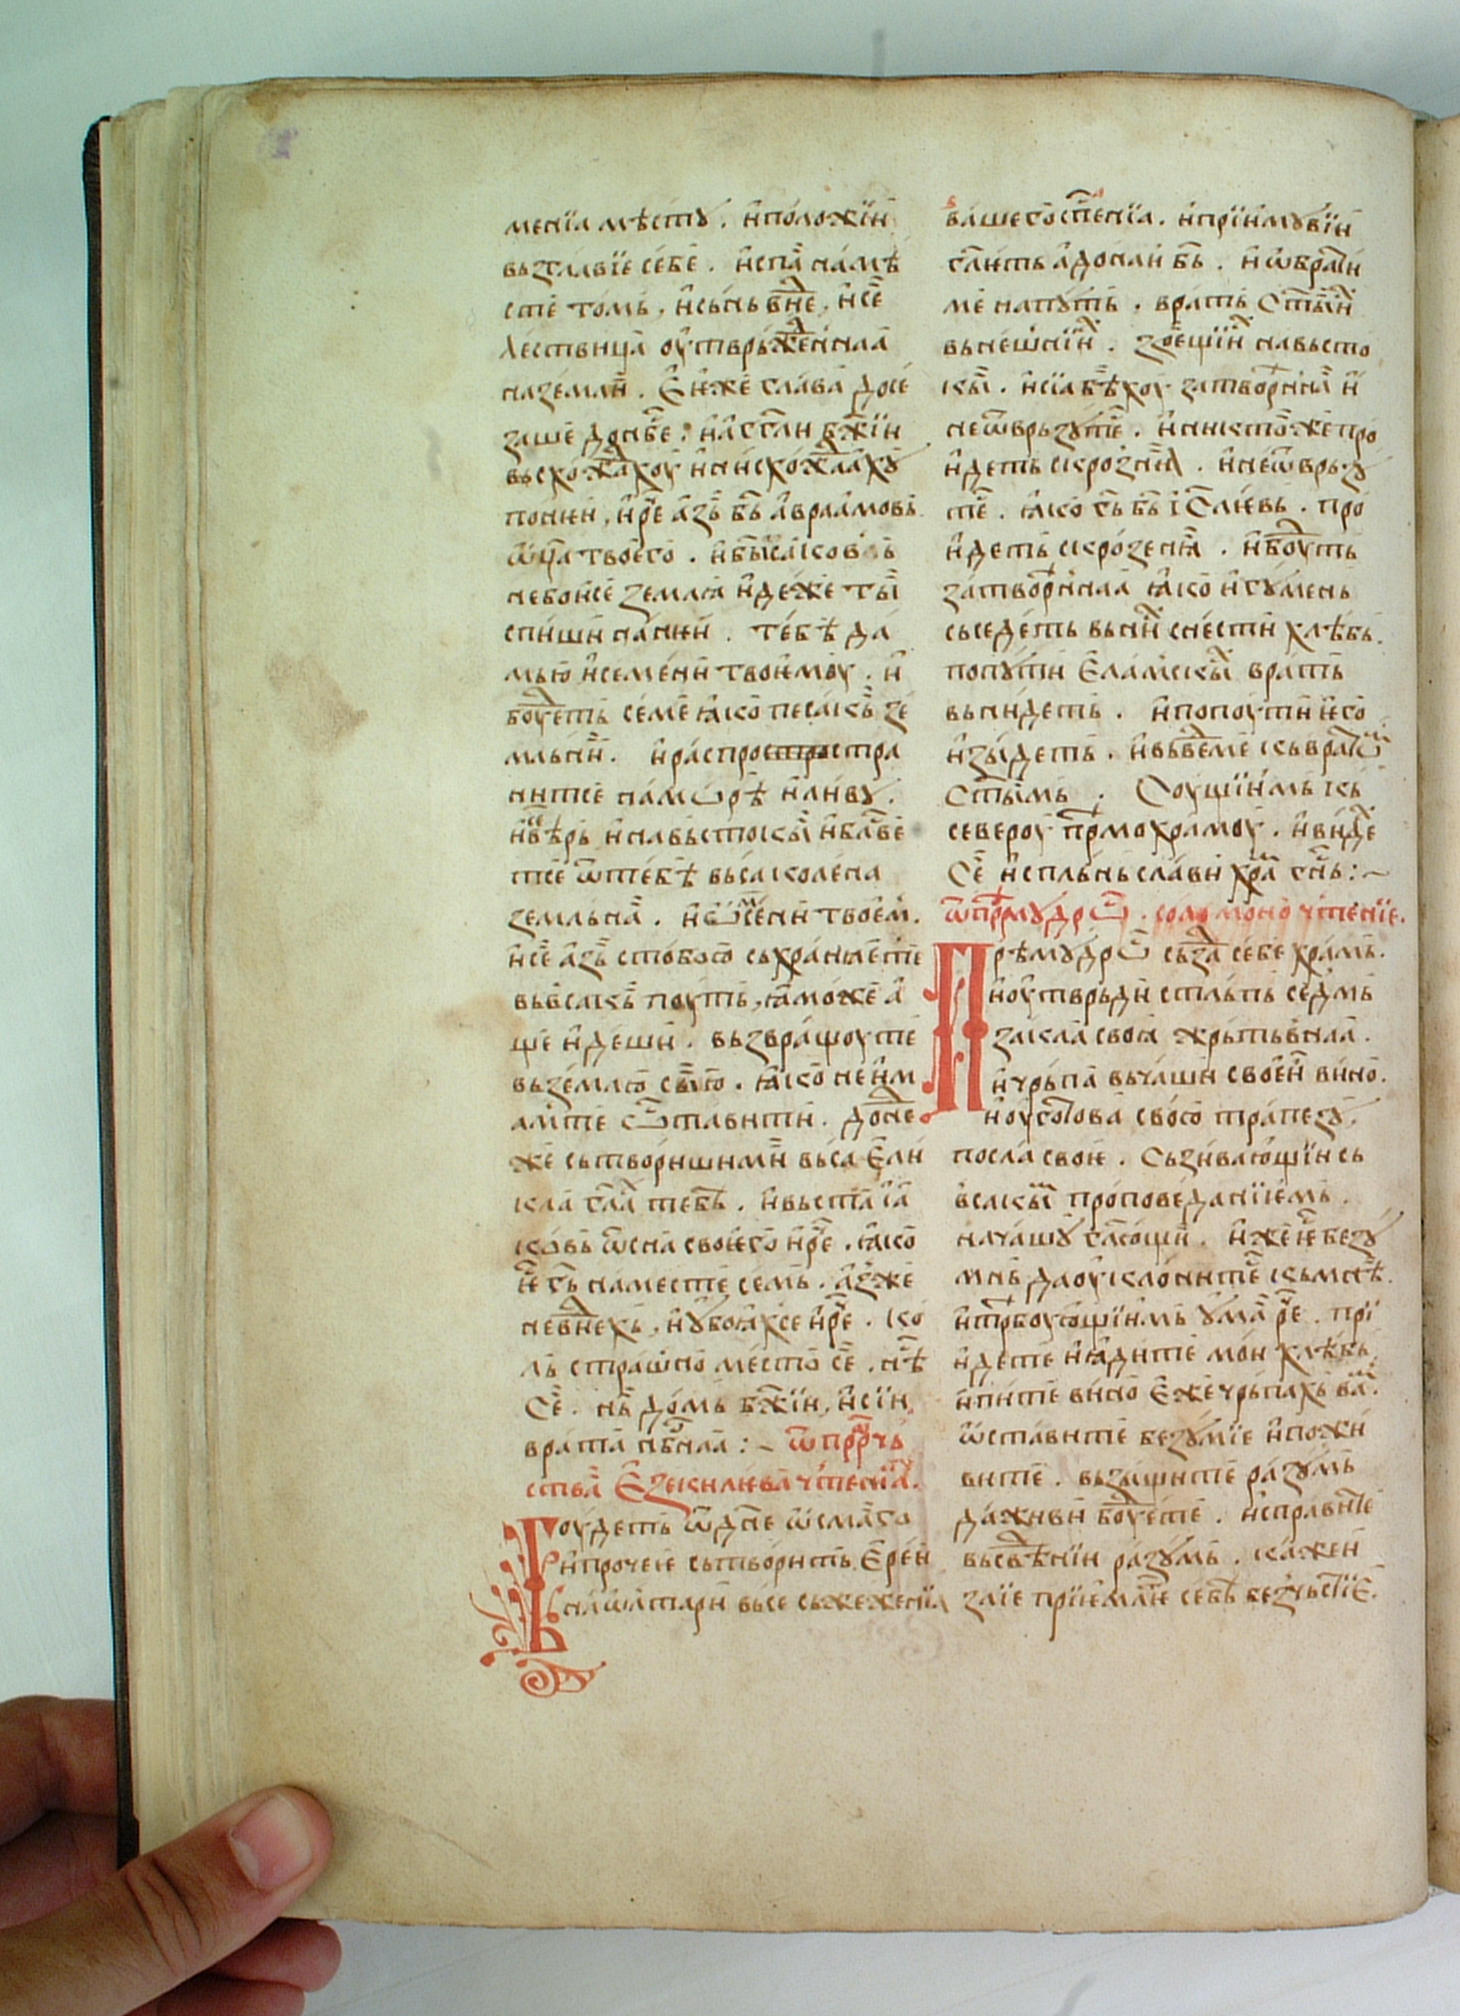 менїа мѣстꙋ. и положїи
вьзглавїе себѣ. и спа̑ на мѣ
сте томь, и сьнь вⷣие, и се
лествица оутврьжⷣенаа
на земли. Еиже глава досе
заше до нб҃се. и агг҃ли бж҃їи
вьсхожⷣахоу и нисхожⷣаахꙋ
по ниеи, и рⷱе азь б҃ь авраамовь
ѿц҃а твоего. и б҃ь исаковь
не боисе землꙗ идеже ты
спиши на ниеи. тебѣ да
мь ю и семени твоиемоу. и
боуⷣеть семе ꙗко песакь зе
мльни. и распростра
нитсе на морѣ и ливꙋ.
и вѣрь и на вьстокы и блⷭве
тсе ѿ тебѣ вьса колена
земльна. и ѡ семени твоем.
и се азь с тобою сьхраниете
вь всакь поуть, ꙗможе а
ще идеши. вьзвращоу те
вь землю сию. ꙗко не им
ам те ѡставити. донⷣе
же сьтворишими вьса ели
ка гл҃аⷯ тебѣ. и вьста їа
ковь ѿ сна своиего и рⷱе. ꙗко
иⷭ г҃ь на месте семь. аз же
не вⷣиехь, и ꙋбоꙗхсе и рⷱе. ко
ль страшно место се. нⷭѣ
се. нь домь бж҃їи, и сїи
врата нбⷭнаа :~ ѿ прⷪрⷪчь
ства Езекилиева чтенїа.
Боудеть ѿ дне ѡсмаго
и прочеие сьтворить Ереи
на ѡлтари вьсе сьжеженїа
ваше го спⷭенїа. и прїимꙋ вїи
гл҃ить адонаи б҃ь. и ѡбрати
ме на путь. врать ст҃ыиⷯ
вьнешнїиⷯ. зрⷺещїиⷯ на вьсто
кы. и сїа бѣхоу затворⷺена и
не ѿврьзꙋтⷭе. и никтоже про
идеть скрозѣ ниⷯ. и не ѿврьзꙋ
тⷭе. ꙗко г҃ь б҃ь їс҃лиевь. про
идеть скрозе нꙗ. и боуⷣть
затворⷺенаа ꙗко игꙋмень
сьседеть вь ниⷯ снести хлѣбь.
по пꙋти Еламскыⷯ врать
вьнидеть. и по поути иего
изыдеть. и вьвⷣеме кь вратом
ст҃ымь. Соущїимь кь
североу прⷺмо храмоу. и видⷯе
Се испльнь славы храⷨ гⷭнь :~
ѿ прⷺмꙋдрости. соломоно чтенїе.
Прѣмꙋдрость сьзⷣа себе храмь.
и оутврьди стльпь седмь
закла своꙗ жрьтьвнаа.
и чрьпа вь чаши своеи вино.
и оуготова свою трапезꙋ,
посла своие. Сьзивающїи сь
всакыⷨ проповеданїиемь.
на чашꙋ гл҃ющи. иже иⷭе безꙋ
мнь да оуклонитⷭе кь мнѣ.
и трⷺбоующїимь ꙋма рⷱе. прї
идете и ꙗдите мои хлѣбь,
и пите вино Еже чрьпахь ваⷨ.
ѡставите безꙋмїе и пожи
вите. вьзищите разꙋмь
да живи боуⷣете. исправите
вь свⷣѣнїи разꙋмь. кажеи
злїе прїиемлие себѣ безчьстїе.